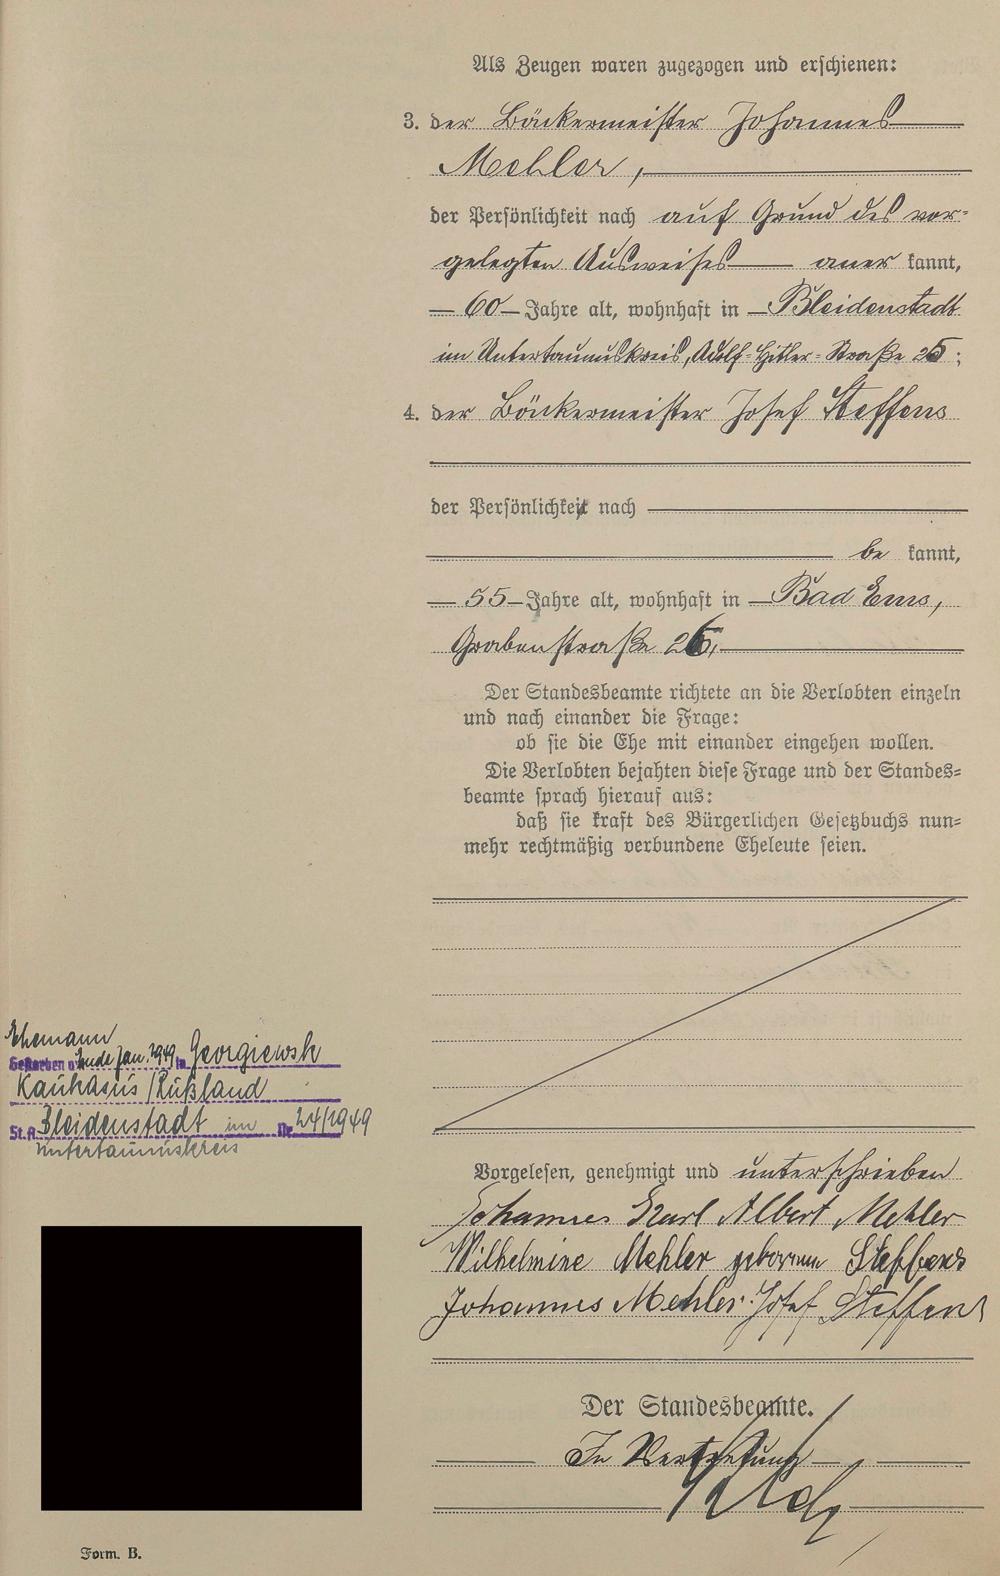 Als Zeugen waren zugezogen und erschienen:
3. der Bäckermeister Johannes
Mehler,
der Persönlichkeit nach auf Grund des vor-
gelegten Ausweises aner kannt,
60 Jahre alt, wohnhaft in Bleidenstadt
im Untertaunuskreis, Adolf-Hitler-Straße 25;
4. der Bäckermeister Josef Steffens
der Persönlichkeit nach
be kannt,
55 Jahre alt, wohnhaft in Bad Ems,
Grabenstraße 26,
Der Standesbeamte richtete an die Verlobten einzeln
und nach einander die Frage:
ob sie die Ehe mit einander eingehen wollen.
Die Verlobten bejahten diese Frage und der Standes-
beamte sprach hierauf aus:
daß sie kraft des Bürgerlichen Gesetzbuchs nun-
mehr rechtmäßig verbundene Eheleute seien.
Ehemann
Gestorben Ende Jan. 1949 in Georgiewsk
Kaukasus/Rußland
St.A. Bleidenstadt im Nr. 24/1949
Untertaunuskreis
Vorgelesen, genehmigt und unterschrieben
Johannes Karl Albert Mehler
Wilhelmine Mehler geborene Steffens
Johannes Mehler. Josef Steffens
Der Standesbeamte.
In Vertretung
Form. B.